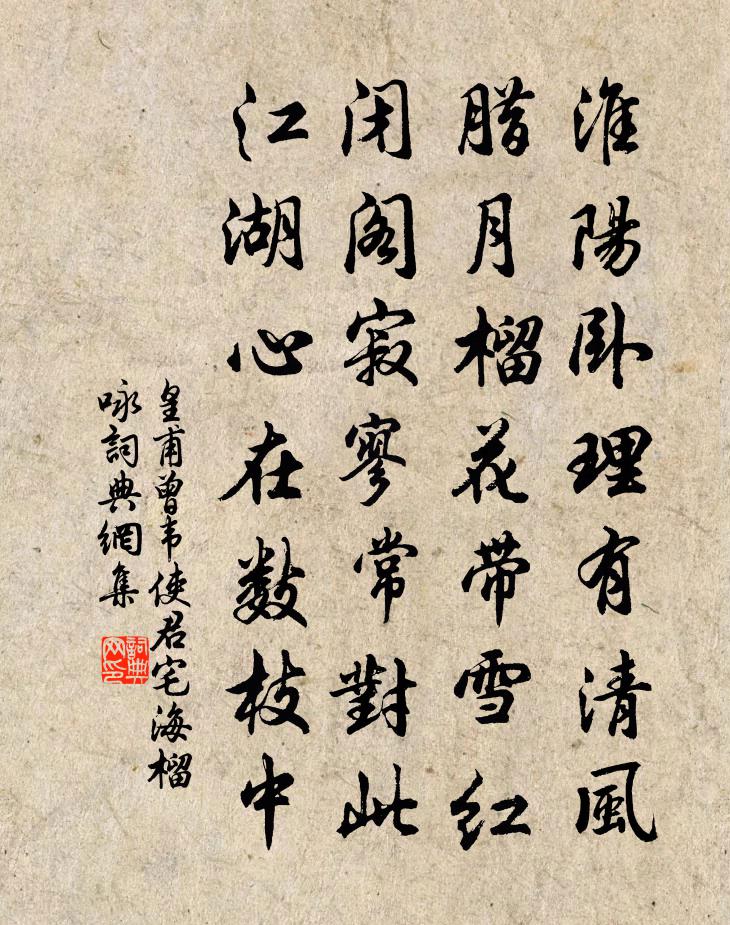 淮陽卧理有清風
腊月榴花带雪红
闭阁寂寥常對此
江湖心在數枝中
皇甫曾韦使君宅海榴
咏詞典網集
詞典
网印